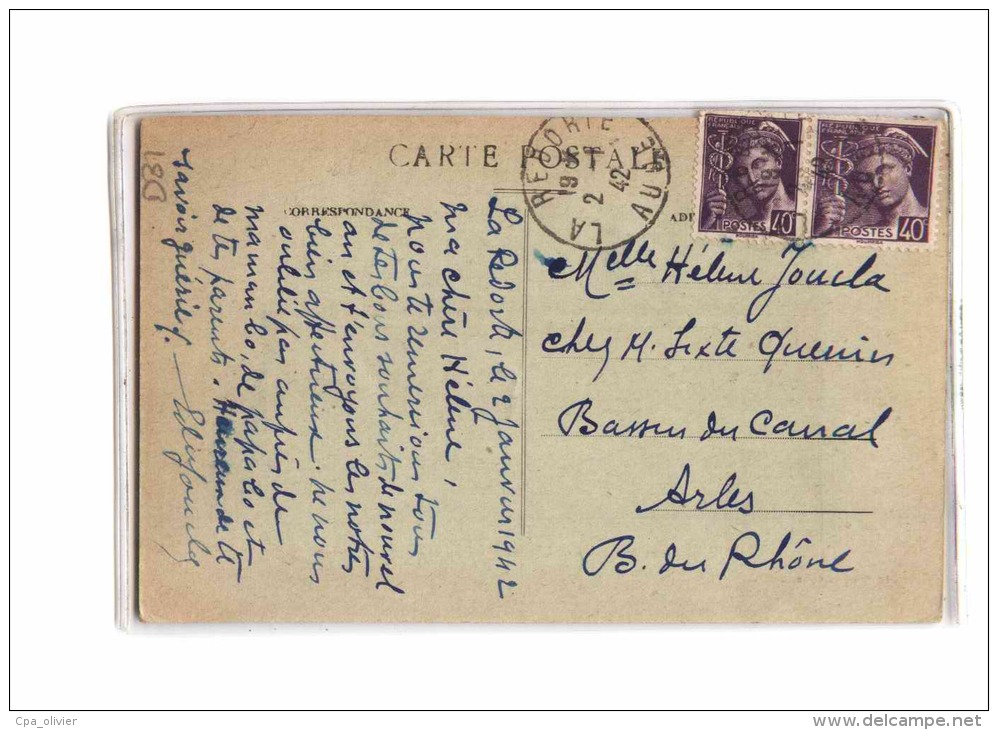 CARTE POSTALE
CORRESPONDANCE
LA REDORTE
AUDE
19
2
1
42
REPUBLIQUE FRANÇAISE
POSTES
40
REPUBLIQUE FRANÇAISE
POSTES
40
La Redorte, le 2 Janvier 1942
ma chère Hélène,
nous te remercions tous
de tes bons souhaits de nouvel
an et t'envoyons les notres
bien affectueux. ne nous
oublie pas auprès de
maman Lo, de papa Lo et
de tes parents. Heureux de te
savoir guérie!
Melle Hélène Joucla
chez M. Sixte Quenin
Bassin du Canal
Arles
B. du Rhône
Cpa_olivier
www.delcampe.net